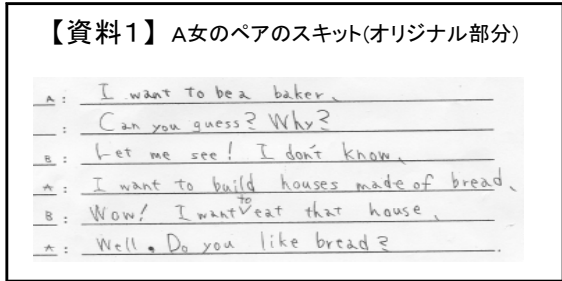 【資料1】 A女のペアのスキット(オリジナル部分)
A : I want to be a baker.
: Can you guess? Why?
B : Let me see! I don't know.
A : I want to build houses made of bread.
B : Wow! I want to eat that house.
A : Well. Do you like bread?